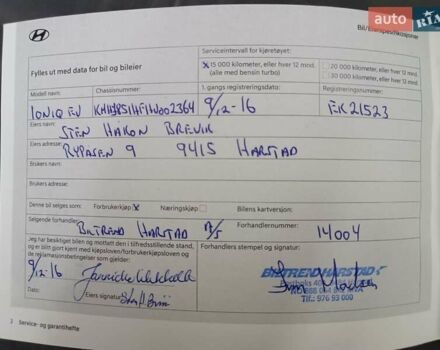 auto RIA
Bil/Eierspesifikasjoner
HYUNDAI
Serviceintervall for kjøretøyet:
Fylles ut med data for bil og bileier
x 15 000 kilometer, eller hver 12 mnd.
(alle med bensin turbo)
20 000 kilometer, eller hver 12 mnd.
30 000 kilometer, eller hver 12 mnd.
Modell navn: Chassisnummer: 1. gangs registreringsdato: Registreringsnummer:
IONIQ EV 9/12-16 EK21523
Eiers navn:
STEN HÅKON BREVIK
Eiers adresse:
RYPÅSEN 9 9415 HARSTAD
Brukers navn:
Brukers adresse:
Denne bil selges som: Forbrukerkjøp x Næringskjøp Bilens kartversjon:
Selgende forhandler: Forhandlernummer:
BILTREND HARSTAD A/S 14004
Jeg har besiktiget bilen og mottatt den i tilfredsstillende stand,
og er blitt gjort kjent med kjøpsloven/forbrukerkjøpsloven og
de reklamasjonsbetingelser som gjelder:
Forhandlers stempel og signatur:
9/12-16
BILTREND HARSTAD
Tlf.: 976 93 000
Dato: Eiers signatur:
2 Service- og garantihefte